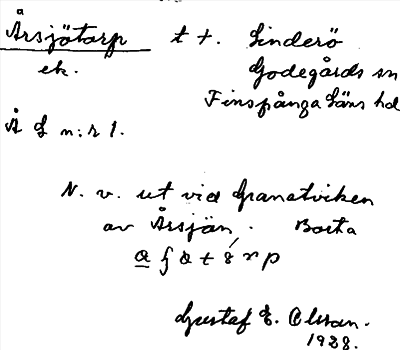 Årsjötorp t +. Sinderö
ek. Godegårds sn
Finspånga läns hd
Å G n:r 1.
N. v. ut vid Granatviken
av Årsjön. Borta
Gustaf E. Olsson.
1928.